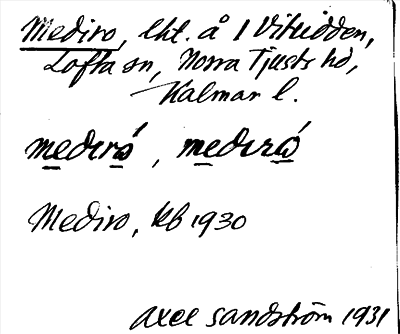 Mediro, lht. å 1 Vitudden,
Lofta sn, Norra Tjusts hd,
Kalmar l.
medɩró, medɩró
Mediro, kb 1930
Axel Sandström 1931